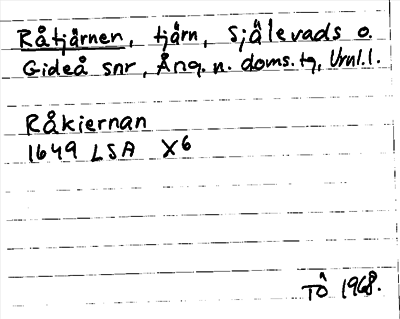 Råtjärnen, tjärn, Själevads o.
Gideå snr, Ång. n. doms. tg, Vrnl. l.
Råkiernan
1649 LSA X6
TÖ 1968.